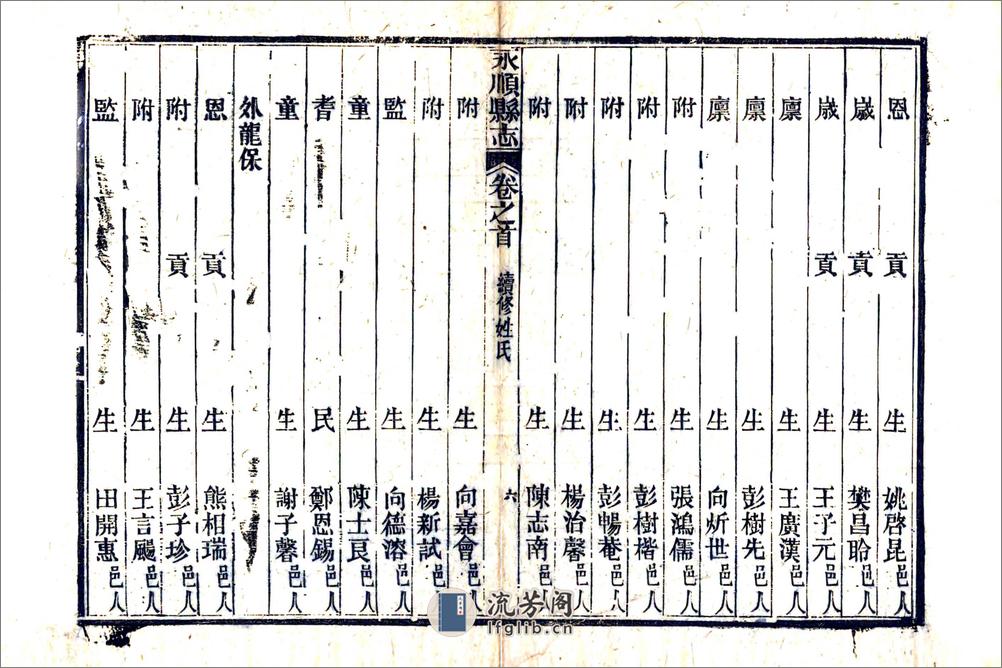 恩貢生姚啓昆邑人
歲貢生樊昌聆邑人
歲貢生王子元邑人
廩生王廣漢邑人
廩生彭樹先邑人
廩生向炘世邑人
附生張鴻儒邑人
附生彭樹楷邑人
附生彭暢菴邑人
附生楊治馨邑人
附生陳志南邑人
永順縣志 卷之首 續修姓氏 六
附生向嘉會邑人
附生楊新試邑人
監生向德溶邑人
童生陳士良邑人
耆民鄭恩錫邑人
童生謝子馨邑人
外龍保
恩貢生熊相瑞邑人
附貢生彭子珍邑人
附生王言颺邑人
監生田開惠邑人
流芳阁
lfglib.cn